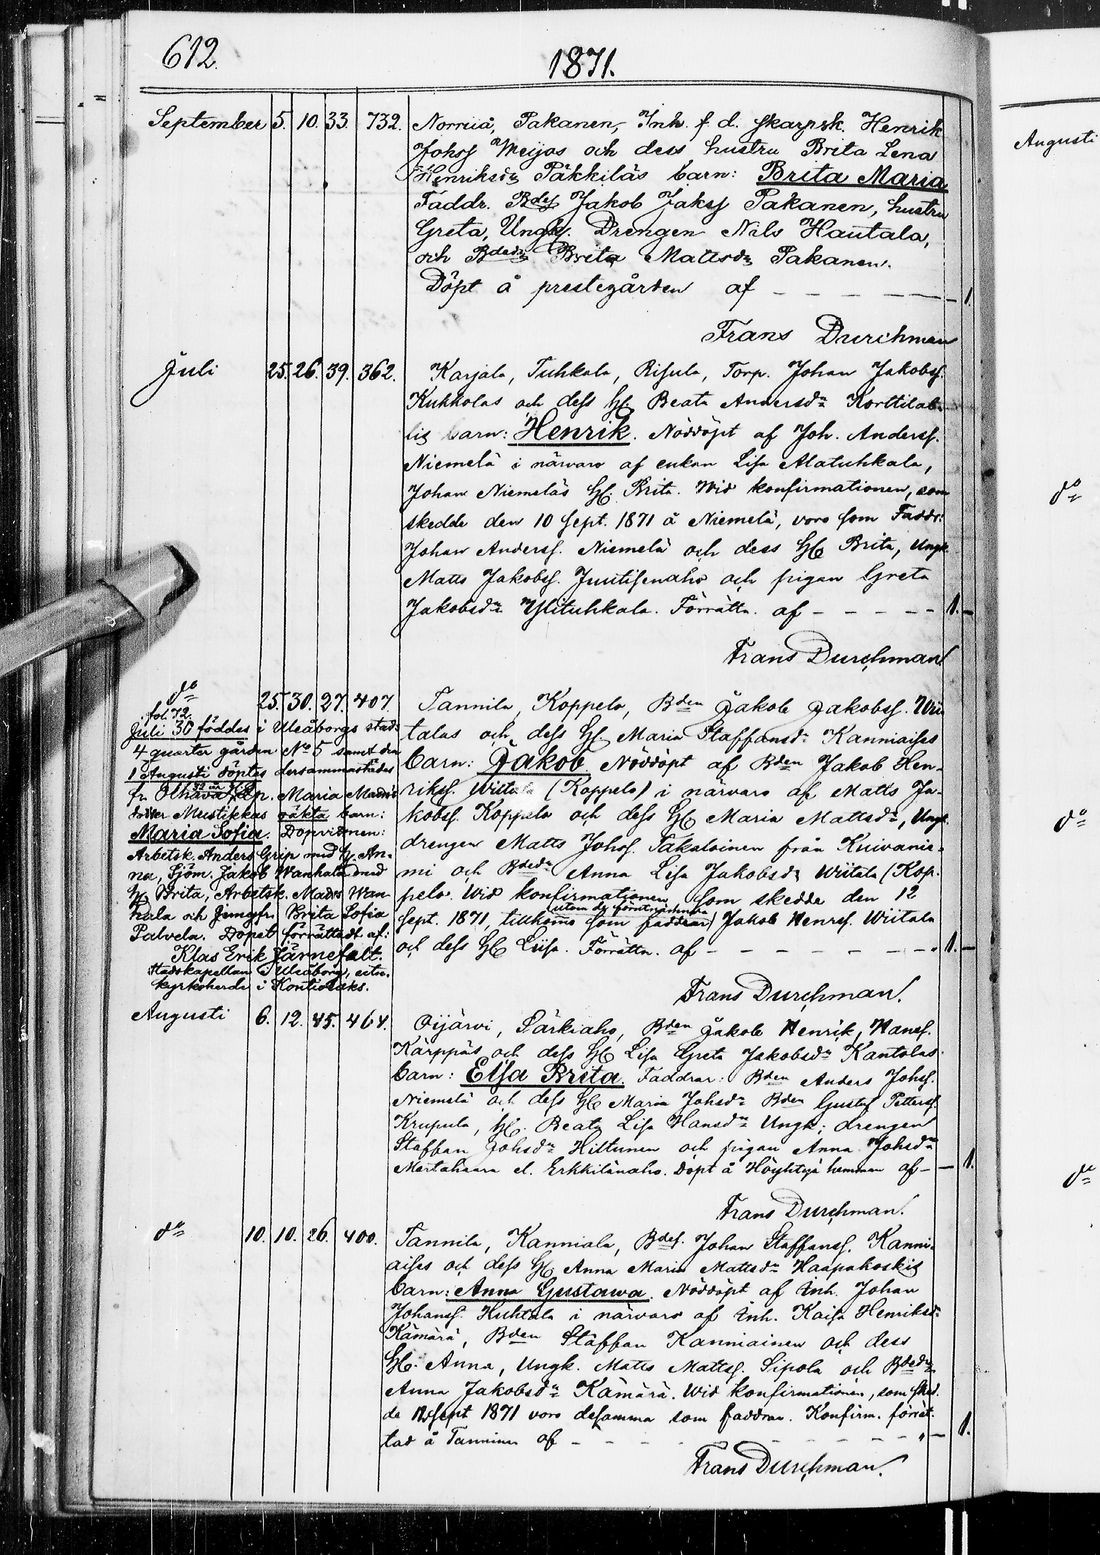 612.
1871.
September 5. 10. 33. 732. Norriiå, Pakanen, Inh. f. d. skarpsk. Henrik
Johsſ Meijos och dess hustru Brita Lena
Henriksdr Päkkiläs barn: Brita Maria
Faddr. Bdeſ Jakob Jaksſ Pakanen, hustru
Greta, Ungk. Drengen Nils Hautala,
och Bdedr Brita Mattsdr Pakanen.
Döpt å prestegården af — — — — — 1.
Frans Durchman
Juli 25. 26. 39. 362. Karjala, Tuhkala, Risula, Torp. Johan Jakobsſ.
Kukkolas och dess H. Beata Andersdr Korttilas
barn: Henrik. Nöddöpt af Joh. Andersſ.
Niemelä i närvaro af enkan Lisa Alatuhkala,
Johan Niemeläs H. Brita. Wid konfirmationen, som
skedde den 10 Sept. 1871 å Niemelä, voro som Faddr:
Johan Andersſ. Niemelä och dess H. Brita, Ungk.
Matts Jakobsſ. Juutisenaho och pigan Greta
Jakobsdr Ylituhkala. Förrättn. af — — — — — 1.—
Frans Durchman
do 25. 30. 27. 407. Tannila, Koppelo, Bden Jakob Jakobsſ. Wii-
talas och dess H. Maria Staffansdr Kanniaises
barn: Jakob Nöddöpt af Bden Jakob Hen-
rikssſ. Wiitala (Koppelo) i närvaro af Matts Ja-
kobsſ. Koppelo och dess H. Maria Mattsdr, Ungk.
drengen Matts Johsſ. Pakaloinen från Kuivanie-
mi och Bdedr Anna Lisa Jakobsdr Wiitala (Kop-
pelo. Wid konfirmationen som skedde den 12
Sept. 1871, tillkomo (utom de förstnämnda) som faddrar Jakob Henrsſ. Wiitala
och dess H. Lisa. Förrättn. af — — — — — 1.—
Frans Durchman.
fol. 72.
Juli 30 föddes i Uleåborgs stad
4 quarter gården No 5 samt den
1 Augusti döptes dersammastädes
fr. Olhava Maria Mads
dotter Mustikkas oäkta barn:
Maria Sofia. Dopvittnen:
Arbetsk. Anders Grip med H. An-
na, Sjöm. Jakob Wanhala med
H. Brita, Arbetsk. Mads Wan-
hala och Jungfr. Brita Sofia
Palvela. Dopet förrättadt af:
Klas Erik Järnefelt.
Stadskapellan i Uleåborg, utn.
kyrkoherde i Kontiolaks.
Augusti 6. 12. 45. 464. Oijärvi, Särkiaho, Bden Jakob Henrik, Hansſ.
Kärppäs och dess H. Lisa Greta Jakobsdr Kantolas
barn: Elsa Brita. Faddrar: Bden Anders Johsſ.
Niemelä och dess H. Maria Johsdr Bden Gustaf Pettersſ.
Krupula, H. Beata Lisa Hansdr Ungk. drengen
Staffan Hiltunen och pigan Anna Johsdr
Martahaara el. Erkkilänaho. Döpt å Höyhtyä hemman af — — 1.
Frans Durchman.
do 10. 10. 26. 400. Tannila, Kanniala, Bdeſ. Johan Staffansſ. Kanni-
aises och dess H. Anna Maria Mattsdr Haapakoskis
barn: Anna Gustawa. Nöddöpt af Inh. Johan
Johansſ. Huhtala i närvaro af Inh. Kaisa Henriksdr
Kämärä, Bden Staffan Kanniainen och dess
H. Anna, Ungk. Matts Mattsſ. Sipola och Bdedr
Anna Jakobsdr Kämärä. Wid konfirmationen, som sked-
de 12 Sept 1871 voro desamma som faddrar. Konfirm. förrät-
tad å Tannila af — — — — — 1.
Frans Durchman.
Augusti
do
do
do